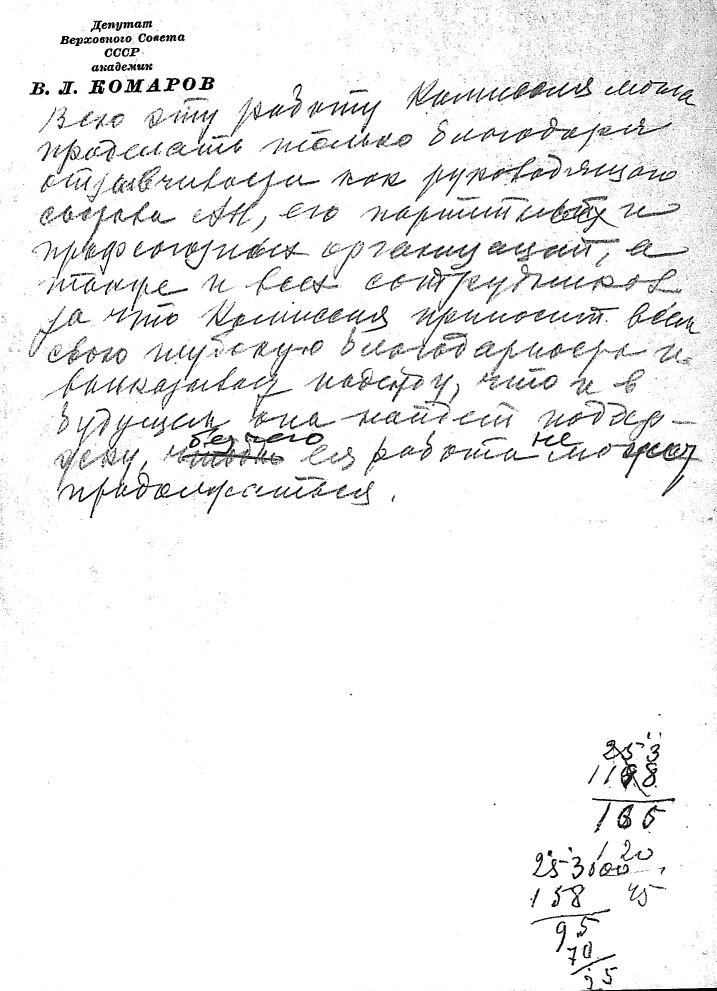 Депутат
Верховного Совета
СССР
академик
В. Л. КОМАРОВ
Всю эту работу Комиссия могла
проделать только благодаря
отзывчивости как руководящего
состава АН, его партийных и
профсоюзных организаций, а
также и всех сотрудников
за что Комиссия приносит всем
свою глубокую благодарность и
высказывает надежду, что и в
будущем она найдет поддер-
жку, без чего ея работа не может
продолжаться.
253
118
135
120
253000
158 45
95
70
25